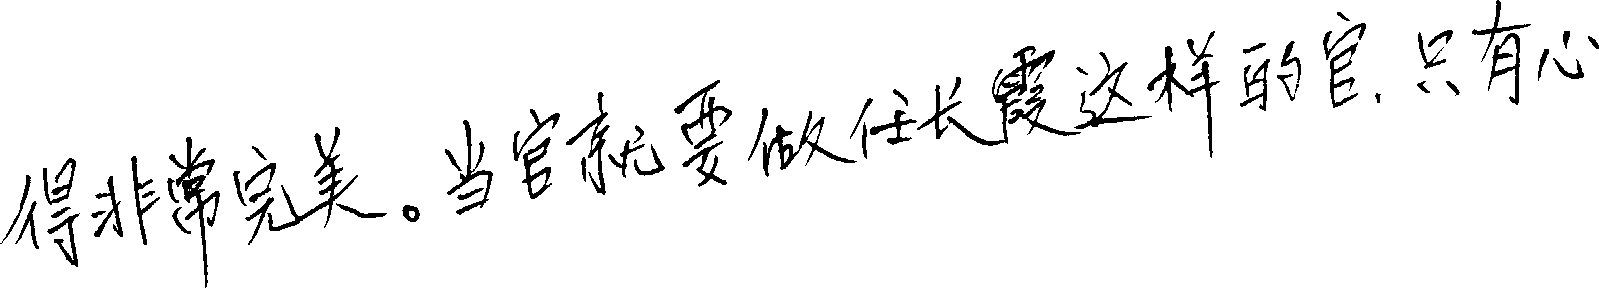 得非常完美。当官就要做任长霞这样的官,只有心